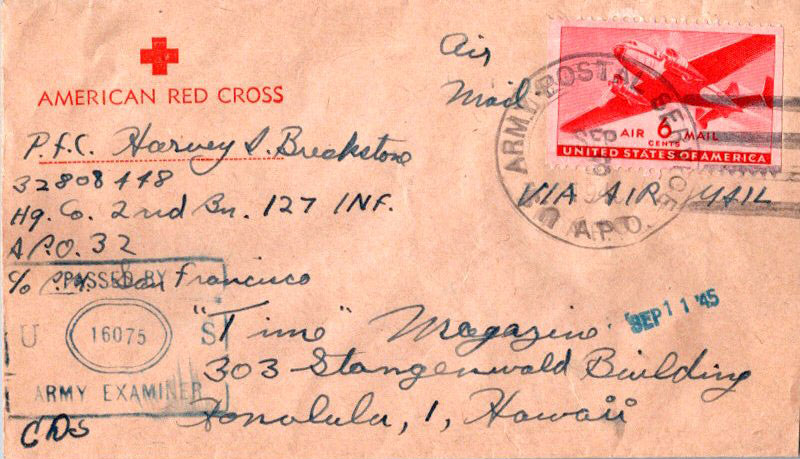 AMERICAN RED CROSS
P.F.C. Harvey S. Breakstone
32808448
Hq. Co. 2nd Bn. 127 INF.
A.P.O. 32
c/o P.M. San Francisco
Air
Mail
AIR 6 MAIL
CENTS
UNITED STATES OF AMERICA
ARMY POSTAL SERVICE
SEP
A.P.O.
VIA AIR MAIL
PASSED BY
U 16075 S
ARMY EXAMINER
CDS
SEP 11 '45
"Time" Magazine
303 Stangenwald Building
Honolulu, 1, Hawaii